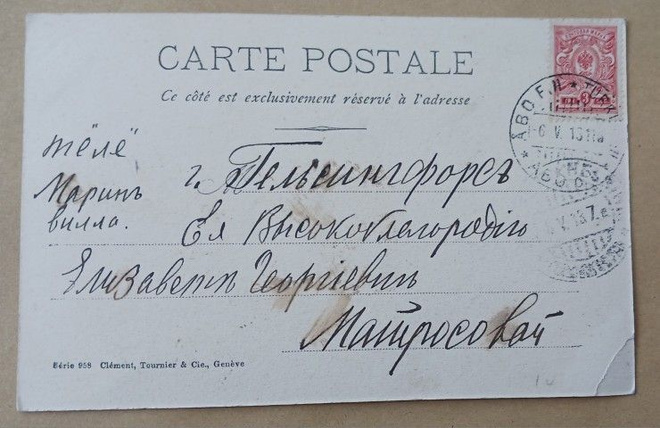 CARTE POSTALE
Ce côté est exclusivement réservé à l'adresse
Тёлё
Маринъ
вилла.
г. Гельсингфорсъ
Ея Высокоблагородію
Елизаветѣ Георгіевнѣ
Матросовой
Série 958 Clément, Tournier & Cie., Genève
ÅBO F.P.
-6. V. 13 11a
ÅBO
V. 13 7. e